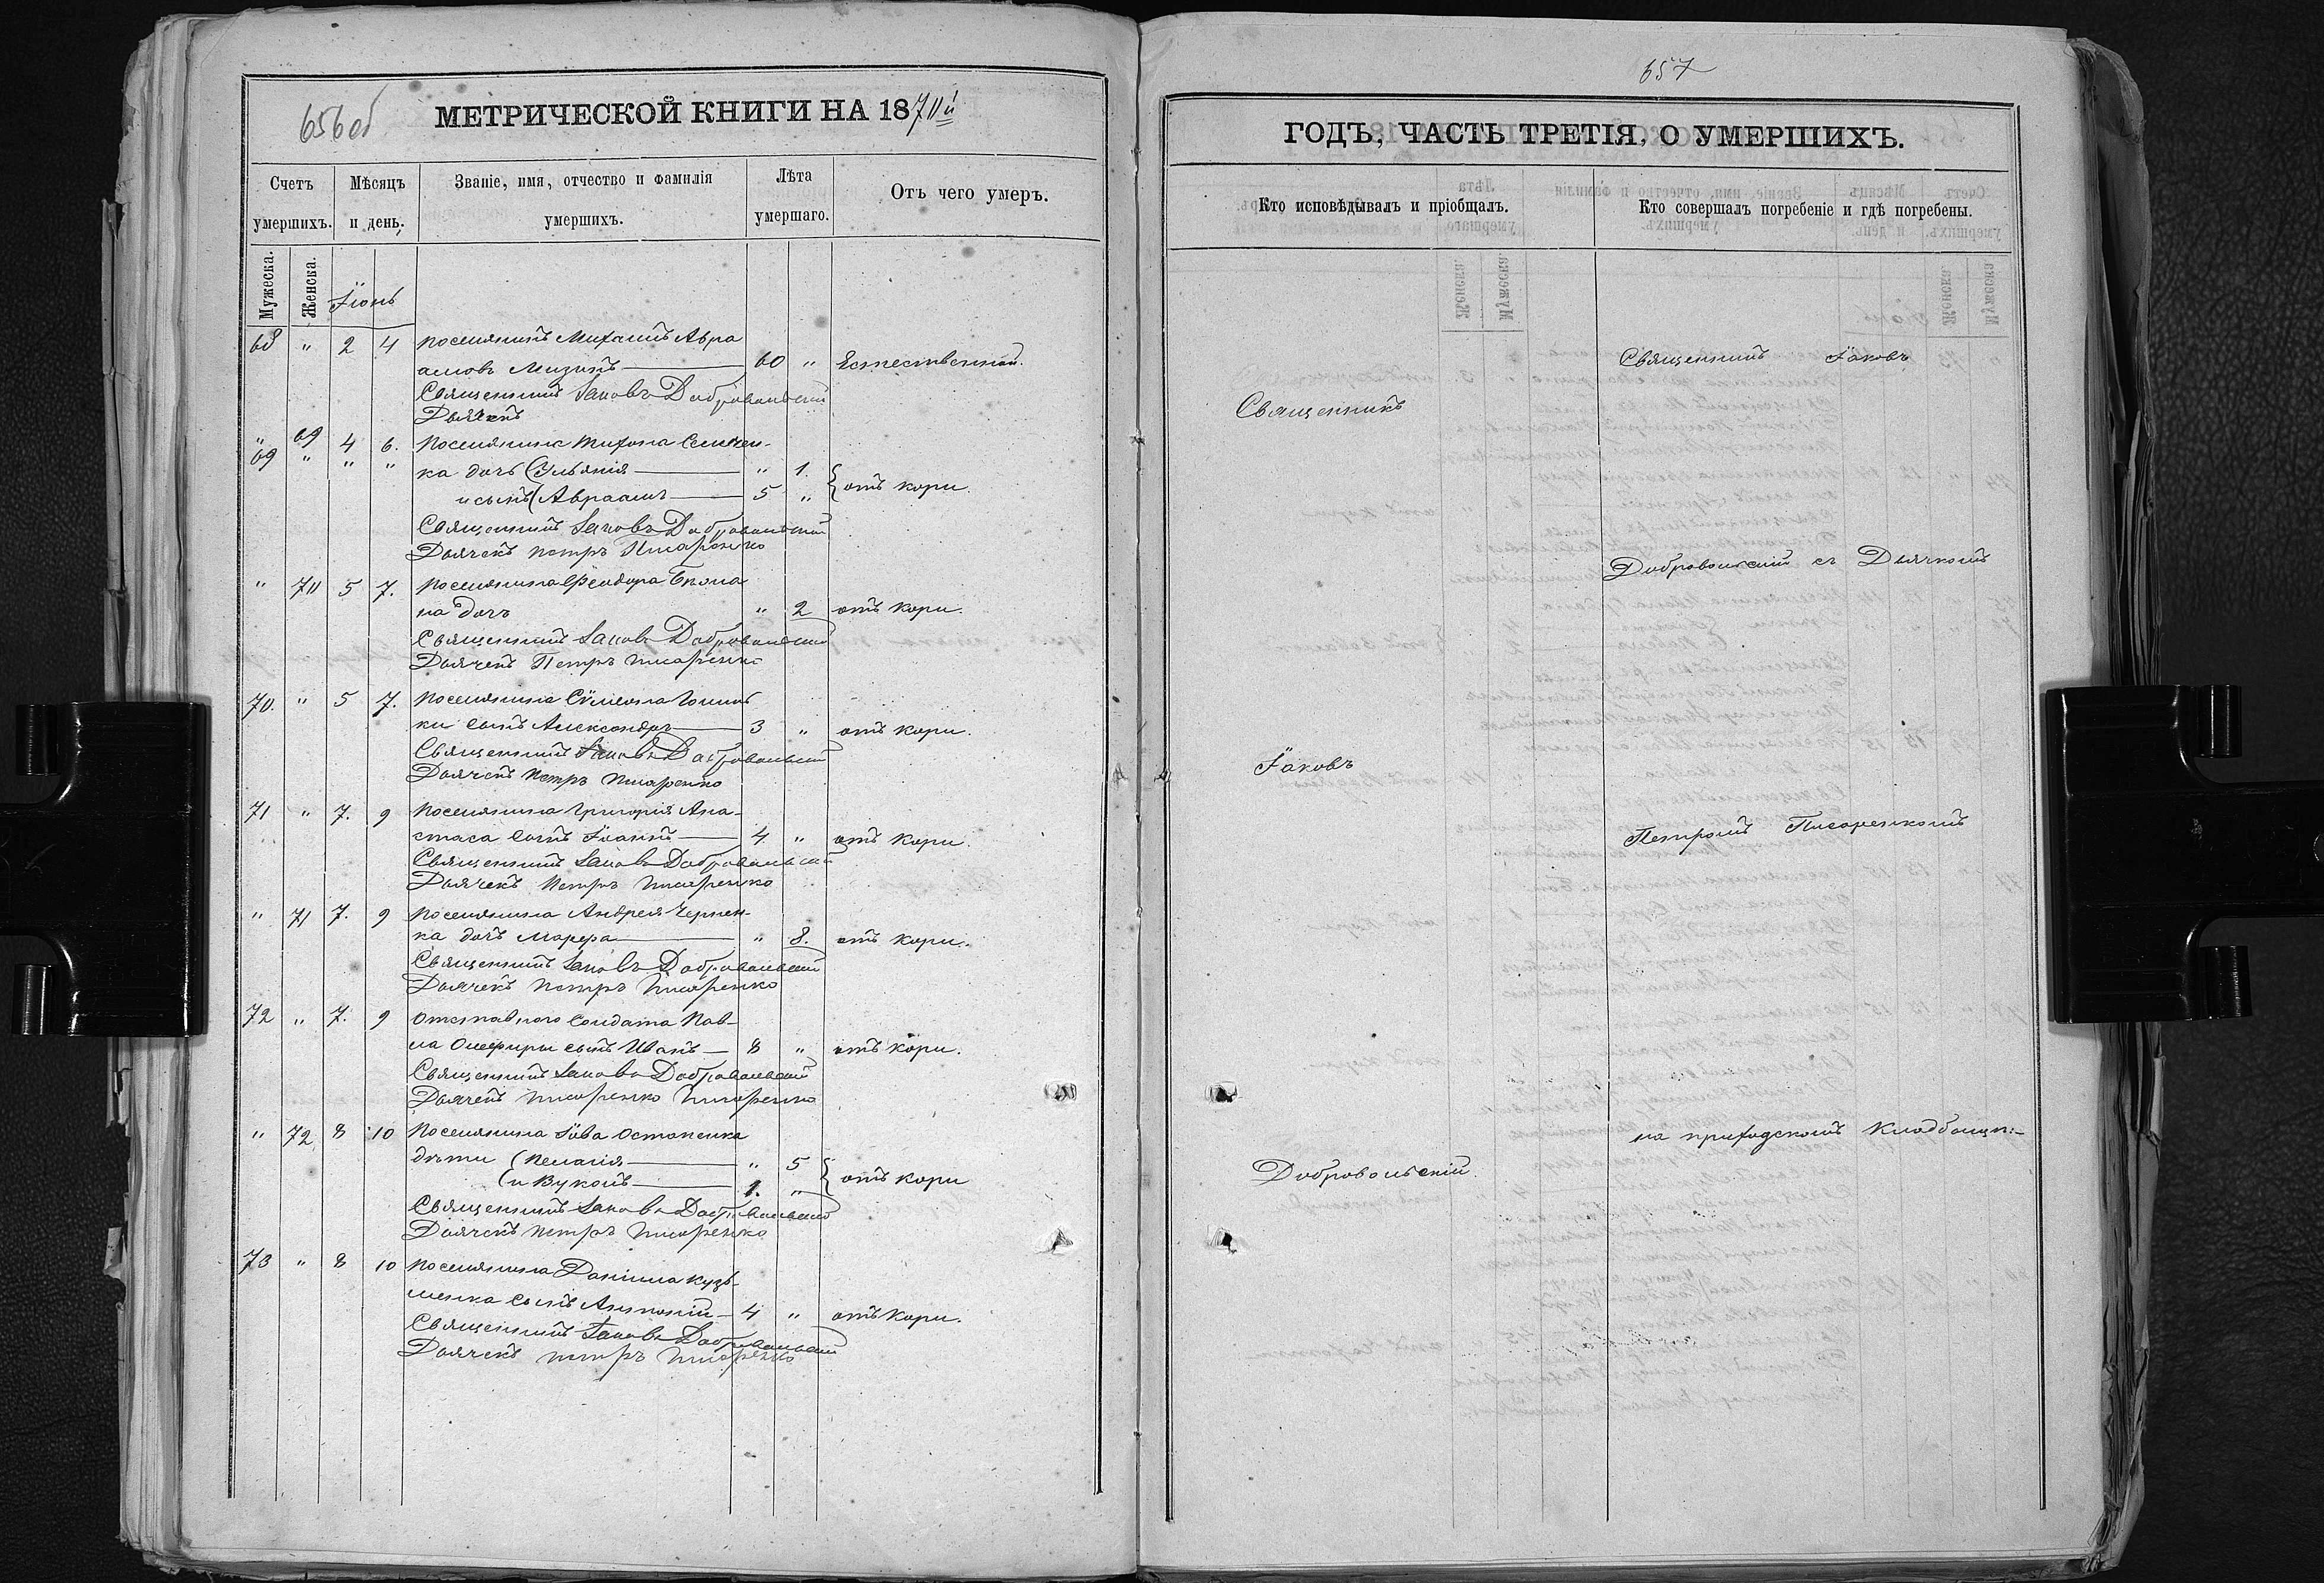 656об
МЕТРИЧЕСКОЙ КНИГИ НА 1870й
Счетъ умершихъ.
Мѣсяцъ и день.
Званіе, имя, отчество и фамилія умершихъ.
Лѣта умершаго.
Отъ чего умеръ.
Мужеска.
Женска.
Іюнь
68 " 2 4 поселянинъ Михаилъ Авра
амовъ Мизинъ 60 " Естественной.
Священникъ Іаковъ Добровольскій
Дьячекъ
" 69 4 6. Поселянина Тихона Семчен-
69 " " " ка дочь (Ульянія " 1.
и сынъ (Авраамъ 5 " отъ кори
Священникъ Іаковъ Добровольскій
Дьячекъ Петръ Писаренко
" 70 5 7. Поселянина Феодора
на дочь " 2 отъ кори.
Священникъ Іаковъ Добровольскій
Дьячекъ Петръ Писаренко
70. " 5 7. Поселянина Сѵмеона
ки сынъ Александръ 3 " отъ кори.
Священникъ Іаковъ Добровольскій
Дьячекъ Петръ Писаренко
71 " 7. 9 Поселянина Григорія Ана-
стаса сынъ Іоаннъ 4 " отъ кори.
Священникъ Іаковъ Добровольскій
Дьячекъ Петръ Писаренко
" 71 7. 9 Поселянина Андрея Черпен-
ка дочь Марфа " 8. отъ кори.
Священникъ Іаковъ Добровольскій
Дьячекъ Петръ Писаренко
72 " 7. 9 Отставного Солдата Пав-
ла сынъ Иванъ 8 " отъ кори.
Священникъ Іаковъ Добровольскій
Дьячекъ Писаренко Писаренко
" 72 8 10 Поселянина Іова Остапенка
дѣти (Пелагія " 5
(и Вуколъ 1. " отъ кори
Священникъ Іаковъ Добровольскій
Дьячекъ Петръ Писаренко
73 " 8 10 Поселянина Даніила Кузь-
менка сынъ Антоній 4 " отъ кори.
Священникъ Іаковъ Добровольскій
Дьячекъ Петръ Писаренко
657
ГОДЪ, ЧАСТЬ ТРЕТІЯ, О УМЕРШИХЪ.
Кто исповѣдывалъ и пріобщалъ.
Кто совершалъ погребеніе и гдѣ погребены.
Священникъ
Іаковъ
Добровольскій
Священникъ Іаковъ
Добровольскій съ Дьячкомъ
Петромъ Писаренкомъ
на приходскомъ Кладбищѣ:-